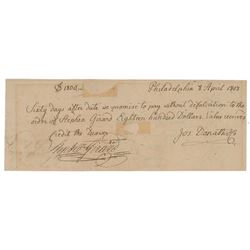 $1800.— Philadelphia 8 April 1803
Sixty days after date we promise to pay without defalcation to the
order of Stephen Girard Eighteen hundred Dollars. Value received
Credit the drawer Jos Donath & Co
Stephen Girard